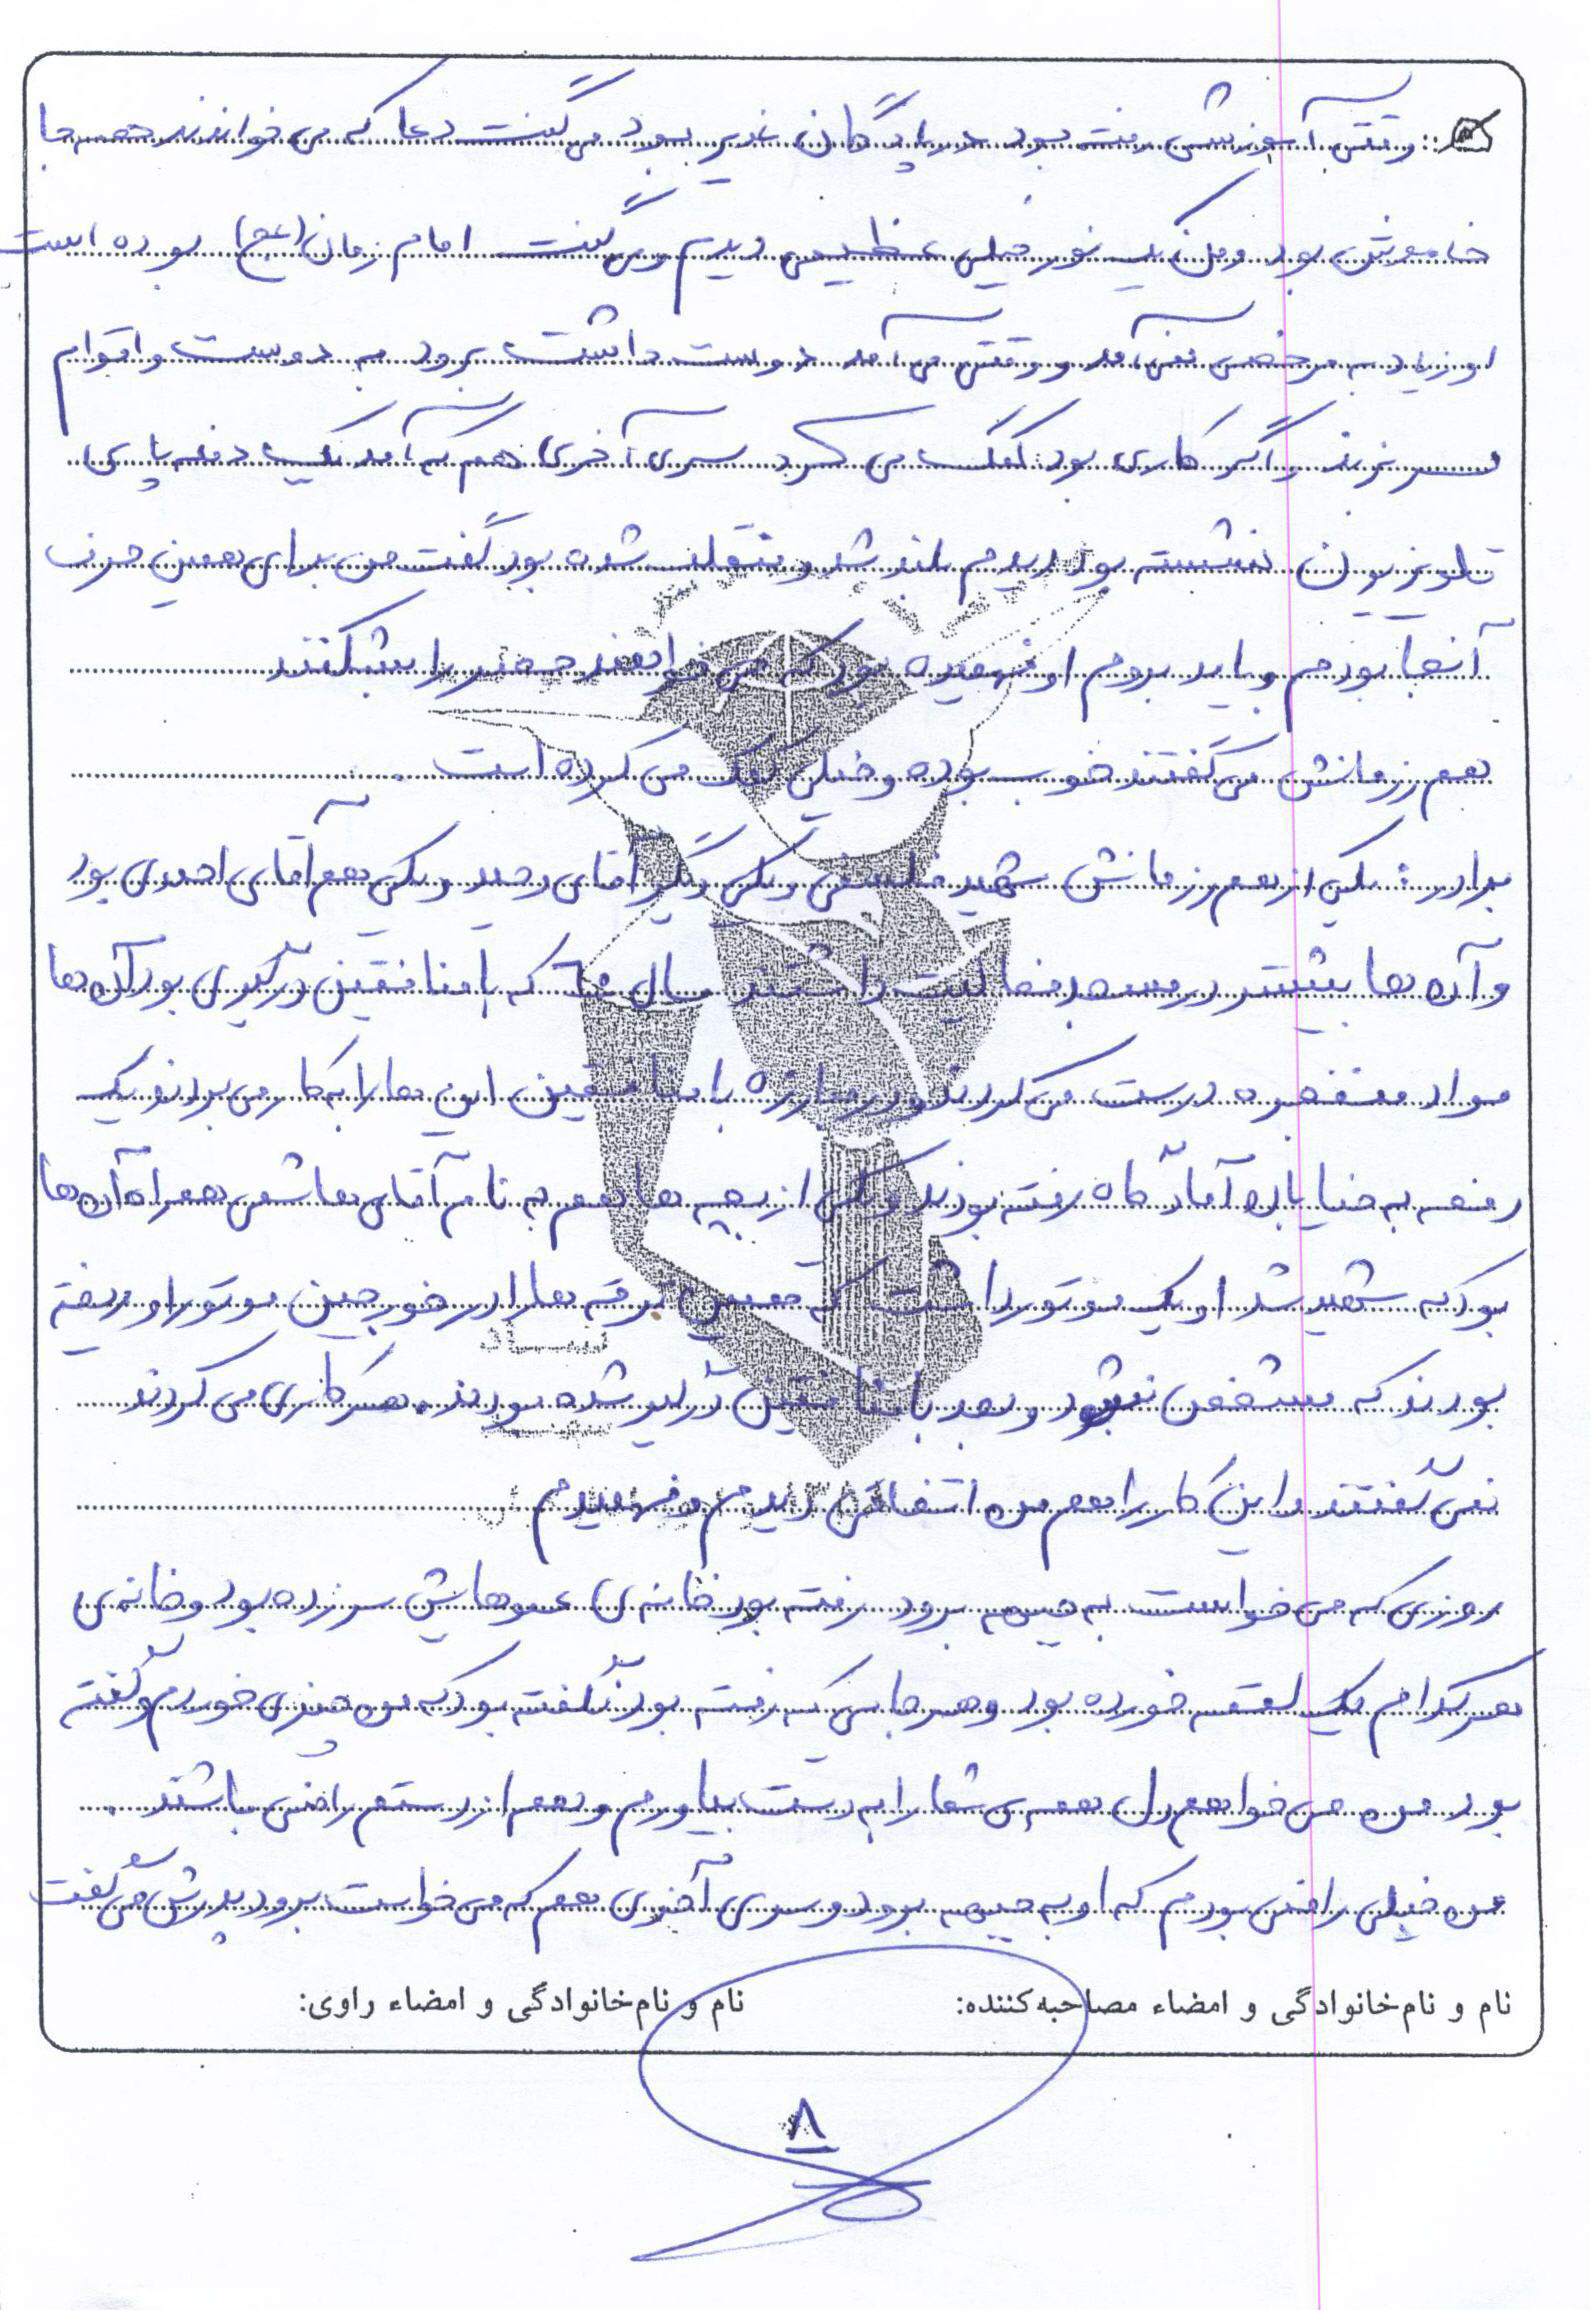 وقتی آموزشی رفته بود در پادگان غدیر بود می گفت دعا که می خواندند همه جا
خاموش بود و من یک نور خیلی عظیمی دیدم و می گفت امام زمان (عج) بوده است
او زیاد به مرخصی نمی آمد و وقتی می آمد دوست داشت برود به دوست و اقوام
سر بزند و اگر کاری بود کمک می کرد سری آخری هم که آمد یک دفعه پای
تلویزیون نشسته بود دیدم بلند شد و منقلب شده بود گفت من برای همین حرف
آنجا بودم و باید بروم او فهمیده بود که می خواهند حصر را بشکنند
هم رزمانش می گفتند خوب بوده و خیلی کمک می کرده است .
برادر : یکی از هم رزمانش شهید فلسفی و یکی دیگر آقای وحید و یکی هم آقای احمدی بود
و آن ها بیشتر در مسجد فعالیت داشتند سال ۶۰ که با منافقین درگیری بود آن ها
مواد منفجره درست می کردند و در مبارزه با منافقین این ها را به کار می بردند و یک
دفعه به خیابان آمادگاه رفته بودند و یکی از بچه ها هم به نام آقای هاشمی همراه آن ها
بود که شهید شد او یک موتور داشت که همین ترقه ها را در خورجین موتور او ریخته
بودند که مشخص نشود و بعد با منافقین درگیر شده بودند . هر کاری می کردند
نمی گفتند و این کار را هم من اتفاقی دیدم و فهمیدم .
روزی که می خواست به جبهه برود رفته بود خانه ی عموهایش سر زده بود و خانه ی
هر کدام یک لقمه خورده بود و هر جایی که رفته بود نگفته بود که من چیزی خوردم و گفته
بود من می خواهم دل همه ی شما را به دست بیاورم و همه از دستم راضی باشند .
من خیلی راضی بودم که او به جبهه برود و سری آخری هم که می خواست برود پدرش می گفت
نام و نام‌خانوادگی و امضاء مصاحبه‌کننده: نام و نام‌خانوادگی و امضاء راوی:
۸